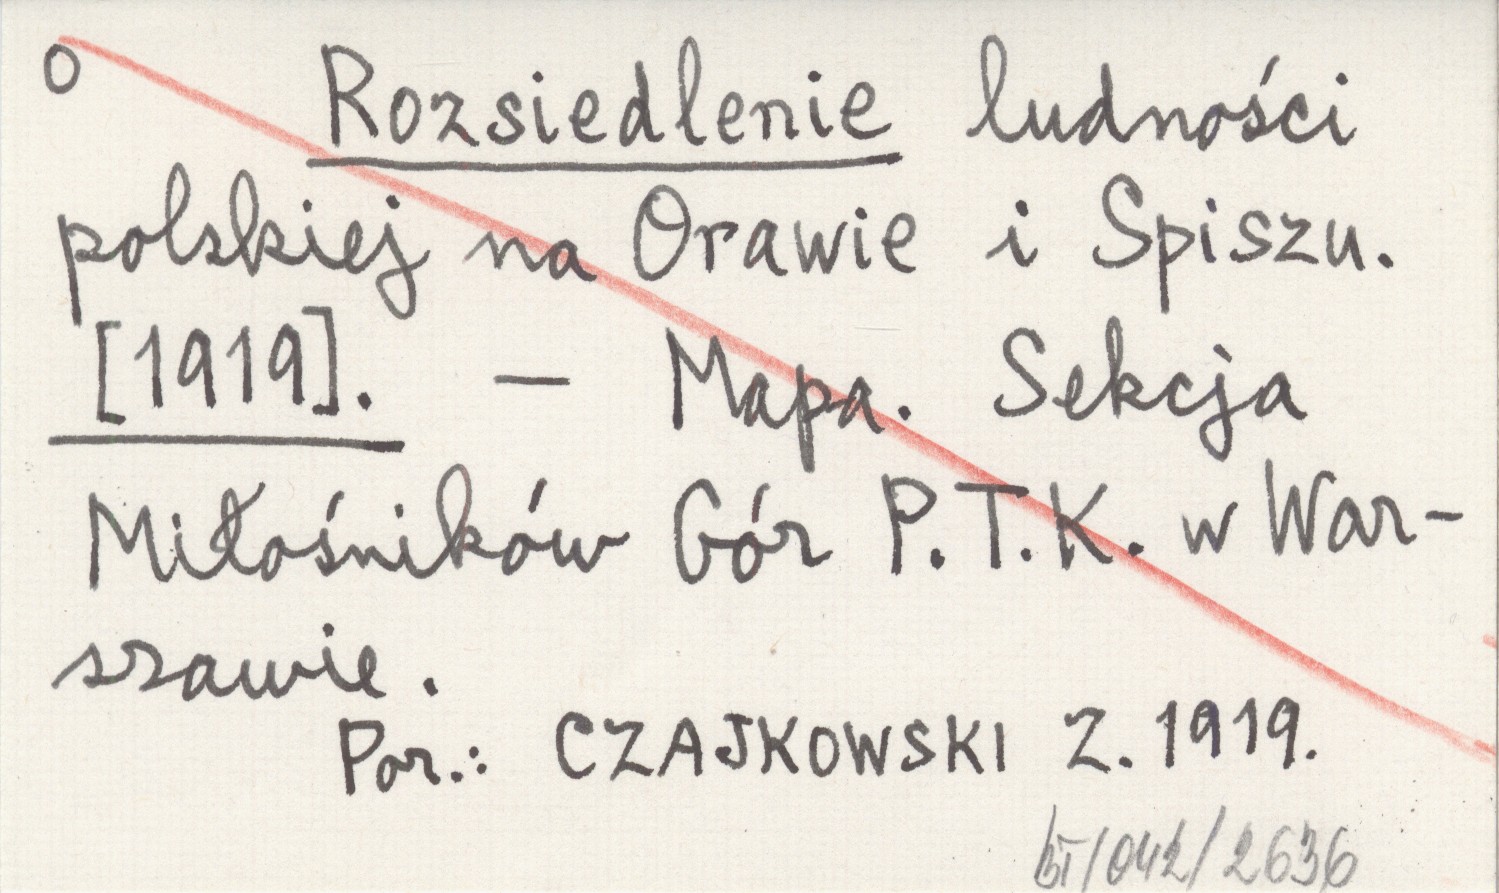 o Rozsiedlenie ludności
polskiej na Orawie i Spiszu.
[1919]. — Mapa. Sekcja
Miłośników Gór P.T.K. w War-
szawie.
Por.: CZAJKOWSKI Z. 1919.
BT/042/2636